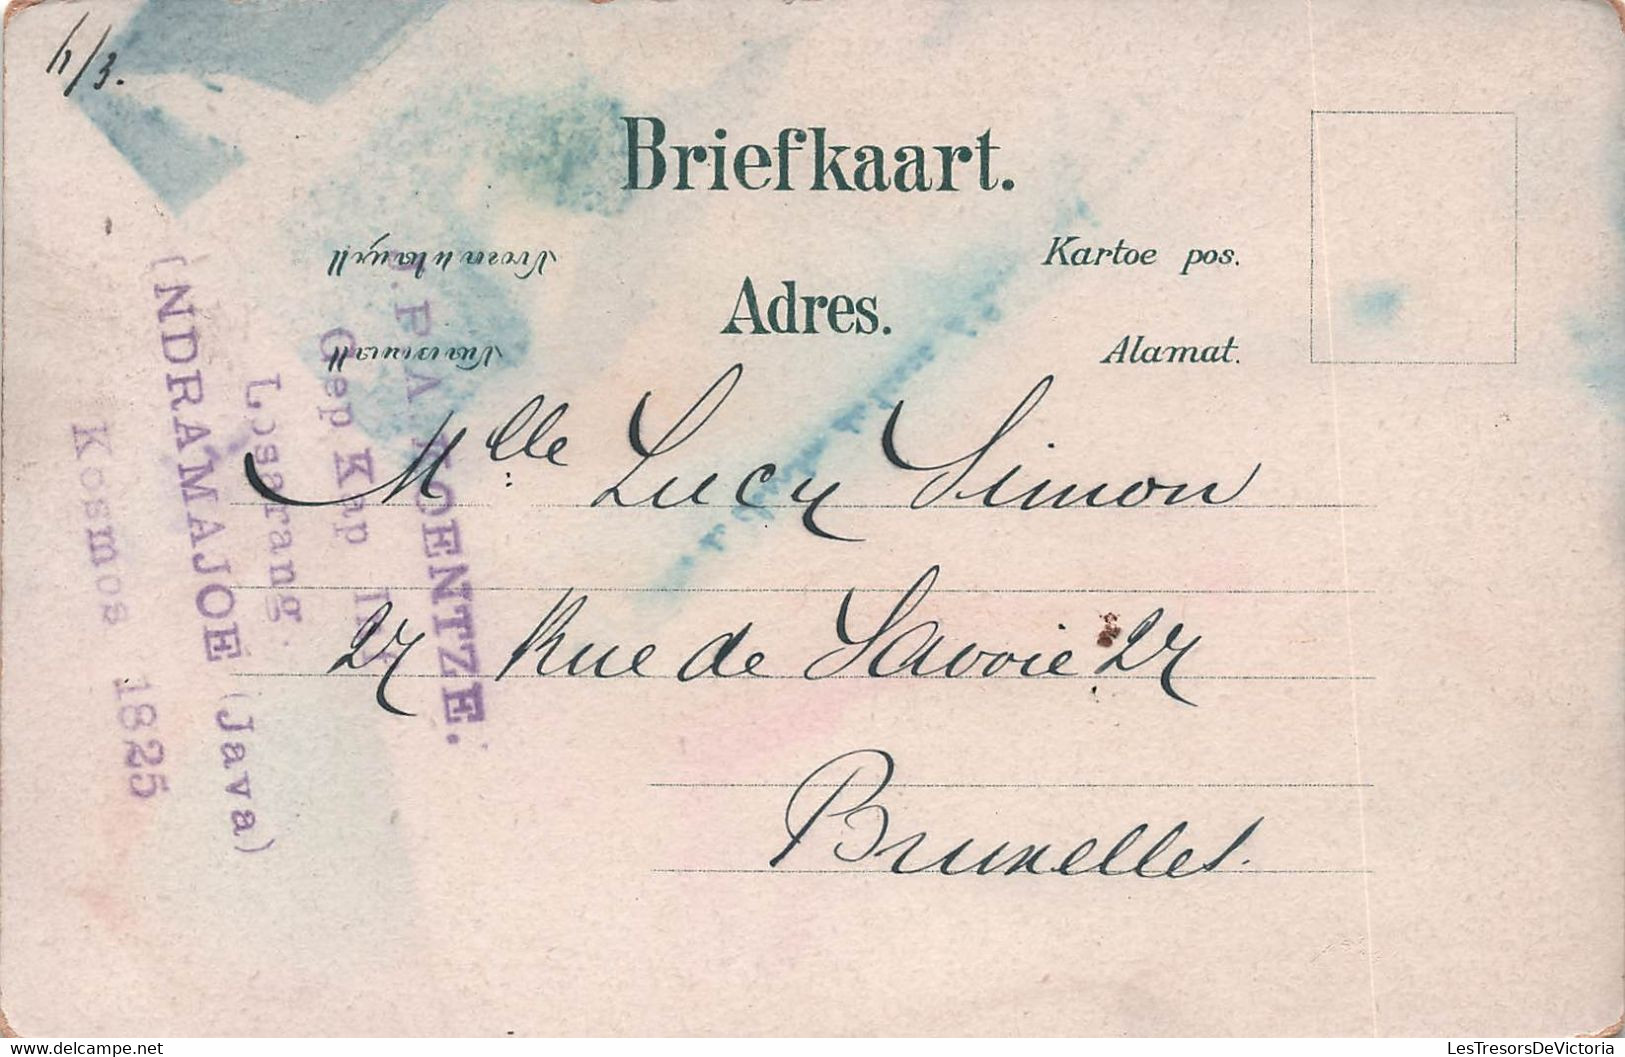 h/3.
Briefkaart.
Kartoe pos.
Adres.
Alamat.
Mlle: Lucy Simon
27 Rue de Savoie 27
Bruxelles.
Gep Kap
Losarang.
INDRAMAJOE (Java)
Kosmos 1825
LesTresorsDeVictoria